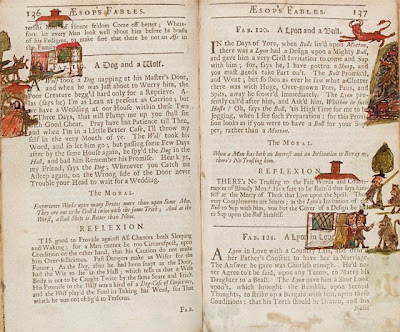 136 ÆSOP'S FABLES.
of House seldom Come off better; Where-
fore let every Man look well about him before he brags
of his Pedigree, make sure that there be not an Ass in
the Family
A Dog and a Wolf.
Wolf took a Dog napping at his Master's Door,
and when he was just about to Worry him, the
Poor Creature begg'd hard only for a Reprieve. As
(says he) I'm as Lean at present as Carrion; but
we have a Wedding at our House within these Two
Three Days, that will Plump me up you shall see
Good Chear. Pray have but Patience till Then,
and when I'm in a Little Better Case, I'll throw my
self in the very Mouth of ye. The Wolf took his
Word, and so let him go; but passing some Few Days
after by the same House again, he spy'd the Dog in the
and bad him Remember his Promise. Heark ye,
my Friend, says the Dog; Whenever you Catch me
Asleep again, on the Wrong side of the Door never
Trouble your Head to wait for a Wedding.
The MORAL.
Experience Works upon many Brutes more than upon Some Men.
They are not to be Gull'd twice with the same Trick; And at the
Worst, a Bad Shift is Better than None.
REFLEXION.
'TIS good to Provide against All Chances both Sleeping
and Waking; for a Man cannot be too Circumspect, upon
Condition on the other hand, that his Caution do not make
him Over-sollicitous. Past Dangers make us Wiser for the
Future; As the Dog, after he had been snapt at the Door,
had the Wit to lie in the Hall; which tells us that a Wise
Body is not to be Caught Twice by the same Snare and Trick.
In fine the Dog's was a kind of a Dog-Case of Conscience,
and the Wolf play'd the Fool in Taking his Word, for That
which he was not oblig'd to Perform.
FAB.
ÆSOP'S FABLES. 137
FAB. 120. A Lyon and a Bull.
IN the Days of Yore, when Bulls liv'd upon Mutton,
there was a Lyon had a Design upon a Mighty Bull,
and gave him a very Civil Invitation to come and Sup
with him; For, says he, I have gotten a Sheep, and
you must needs take Part on't. The Bull Promis'd,
and Went; but so soon as ever he saw what a Clutter
there was with Huge, Over-grown Pots, Pans, and
Spits, away he scower'd immediately. The Lyon pre-
sently call'd after him, and Ask'd him, Whither in such
Haste? Oh, says the Bull, 'tis High Time for me to be
Jogging, when I see such Preparation; for this Provi-
sion looks as if you were to have a Bull for your Sup-
per, rather than a Mutton.
The MORAL.
When a Man has both an Interest and an Inclination to Betray us,
there's No Trusting him.
REFLEXION
THERE's No Trusting to the Fair Words and Countenances
of Bloody Men
self at the Mercy of Those that Live upon the Spoil.
very Complements are Snares; as the Lyon's Invitation of the
Bull to Sup with him, was but the Cover of a Design
to Sup upon the Bull himself.
FAB. 121. A Lyon in Love
A Lyon in Love with a Country Lass,
her Father's Consent to have her in Marriage.
The Answer he gave was Churlish enough. He'd ne-
ver Agree to't he said, upon any Terms, to Marry his
Daughter to a Beast. The Lyon gave him a Sour Look
upon't, which brought the Bumkin, upon Second
Thoughts, to Strike up a Bargain with him, upon these
Conditions; that his Teeth should be Drawn, and his
Nails